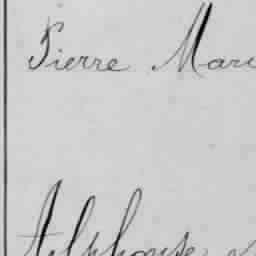 Pierre Mari
Alphonse